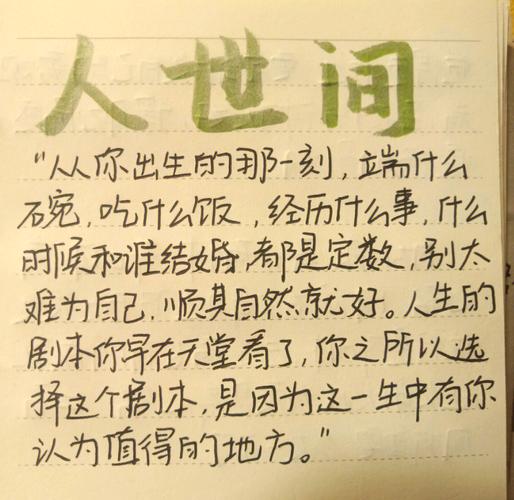 人世间
“从你出生的那一刻，端什么
碗，吃什么饭，经历什么事，什么
时候和谁结婚，都是定数，别太
难为自己，顺其自然就好。人生的
剧本你早在天堂看了，你之所以选
择这个剧本，是因为这一生中有你
认为值得的地方。”